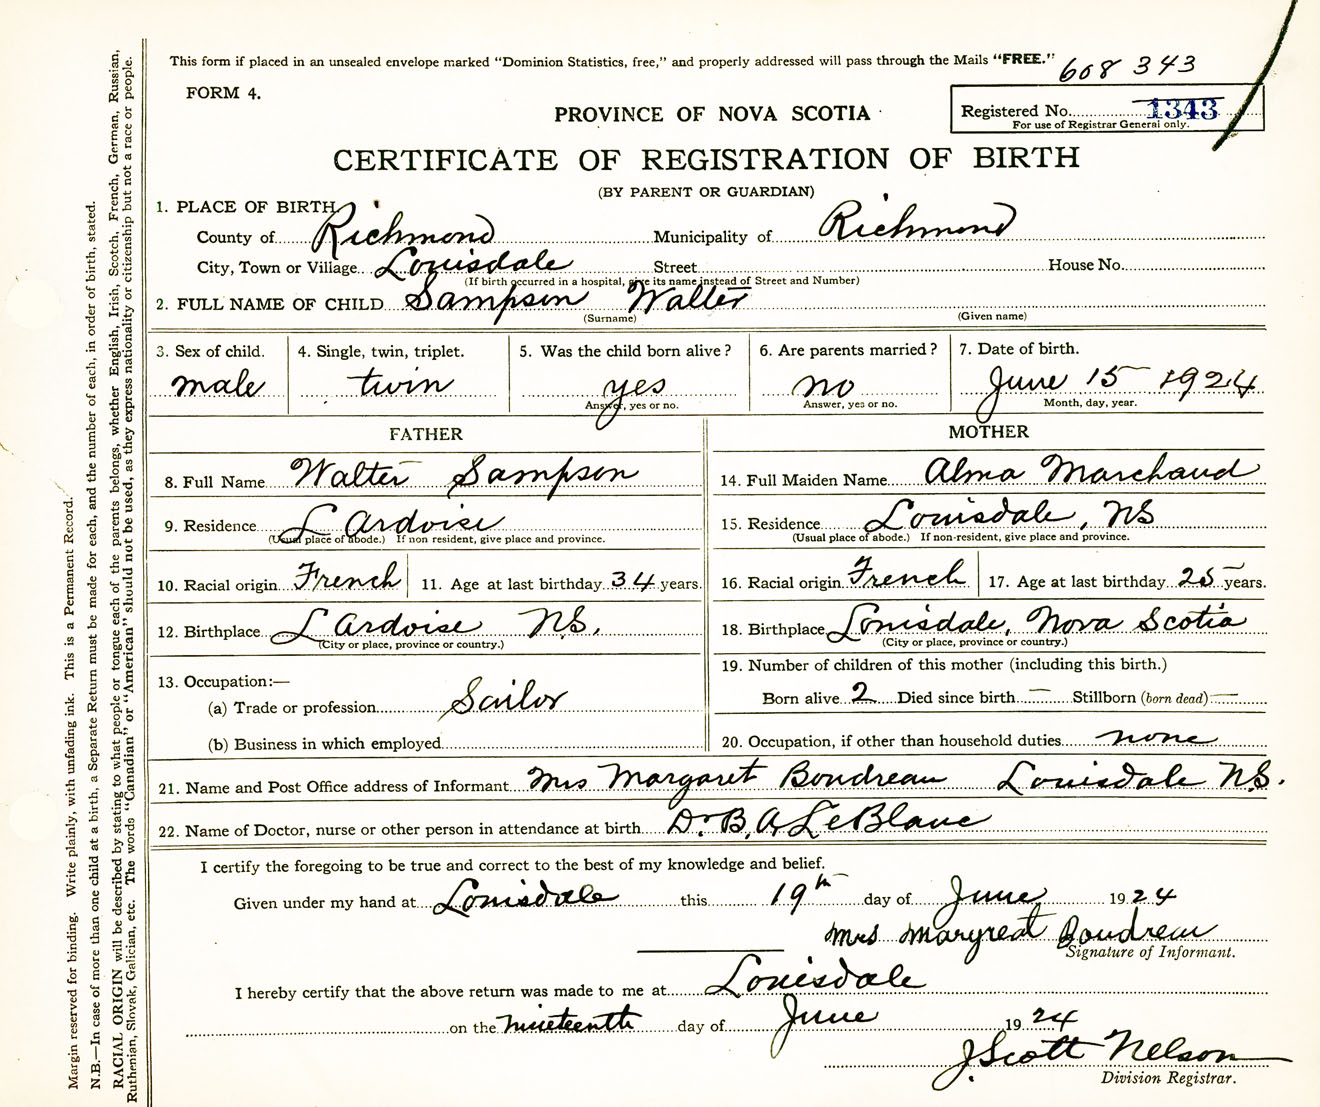 This form if placed in an unsealed envelope marked "Dominion Statistics, free," and properly addressed will pass through the Mails "FREE."
608 343
FORM 4.
PROVINCE OF NOVA SCOTIA
Registered No. 1343
For use of Registrar General only.
CERTIFICATE OF REGISTRATION OF BIRTH
(BY PARENT OR GUARDIAN)
1. PLACE OF BIRTH
County of Richmond Municipality of Richmond
City, Town or Village Louisdale Street House No.
(If birth occurred in a hospital, give its name instead of Street and Number)
2. FULL NAME OF CHILD Sampson Walter
(Surname) (Given name)
3. Sex of child. 4. Single, twin, triplet. 5. Was the child born alive? 6. Are parents married? 7. Date of birth.
male twin yes no June 15 1924
Answer, yes or no. Answer, yes or no. Month, day, year.
FATHER MOTHER
8. Full Name Walter Sampson 14. Full Maiden Name Alma Marchand
9. Residence L Ardoise 15. Residence Louisdale, NS
(Usual place of abode.) If non resident, give place and province. (Usual place of abode.) If non-resident, give place and province.
10. Racial origin French 11. Age at last birthday 34 years. 16. Racial origin French 17. Age at last birthday 25 years.
12. Birthplace L Ardoise N.S. 18. Birthplace Louisdale, Nova Scotia
(City or place, province or country.) (City or place, province or country.)
13. Occupation:—
(a) Trade or profession Sailor
(b) Business in which employed
19. Number of children of this mother (including this birth.)
Born alive 2 Died since birth — Stillborn (born dead) —
20. Occupation, if other than household duties none
21. Name and Post Office address of Informant Mrs Margaret Boudreau Louisdale N.S.
22. Name of Doctor, nurse or other person in attendance at birth Dr. B. A. LeBlanc
I certify the foregoing to be true and correct to the best of my knowledge and belief.
Given under my hand at Louisdale this 19th day of June 1924
Mrs Margreat Boudreau
Signature of Informant.
I hereby certify that the above return was made to me at Louisdale
on the nineteenth day of June 1924
J. Scott Nelson
Division Registrar.
Margin reserved for binding. Write plainly, with unfading ink. This is a Permanent Record.
N.B.—In case of more than one child at a birth, a Separate Return must be made for each, and the number of each, in order of birth, stated.
RACIAL ORIGIN will be described by stating to what people or tongue each of the parents belongs, whether English, Irish, Scotch, French, German, Russian,
Ruthenian, Slovak, Galician, etc. The words "Canadian" or "American" should not be used, as they express nationality or citizenship but not a race or people.